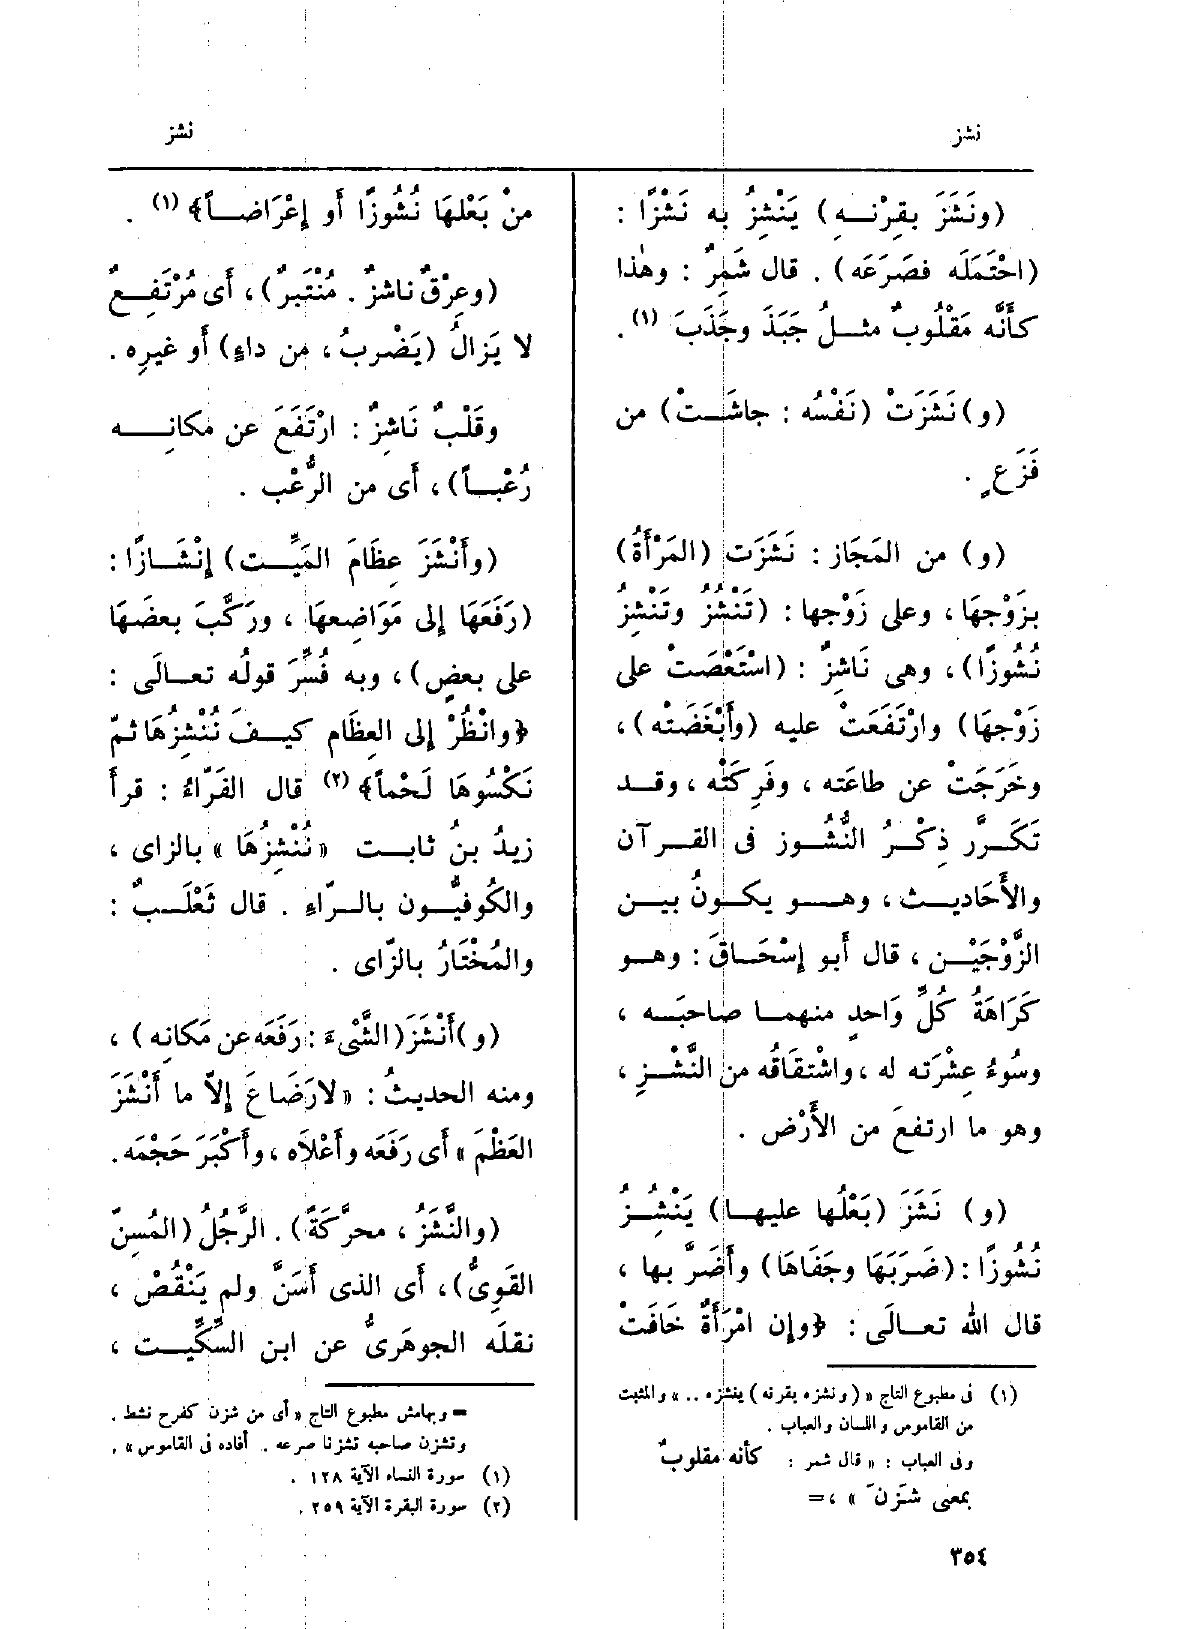 نشز
نشز
(ونَشَزَ بقِرْنِـه) يَنْشِزُ به نَشْزًا :
(احْتَمَلَه فصَرَعَه) . قال شَمِرٌ : وهٰذا
كأَنَّه مَقْلُوبٌ مثـلُ جَبَذَ وجَذَبَ (١) .
(و) نَشَزَتْ (نَفْسُه : جاشَـتْ) من
فَزَعٍ .
(و) من المَجَاز : نَشَزَت (المَرْأَةُ)
بزَوْجِهَا ، وعلى زَوْجها : (تَنْشُزُ وتَنْشِزُ
نُشُوزًا) ، وهى نَاشِزٌ : (اسْتَعْصَتْ على
زَوْجِهَا) وارْتَفَعَتْ عليه (وأَبْغَضَتْه) ،
وخَرَجَتْ عن طاعَته ، وفَرِكَتْه ، وقـد
تَكَرَّر ذِكْـرُ النُّشُـوز فى القـرآن
والأَحَاديـث ، وهـو يكـونُ بيـن
الزَّوْجَيْـن ، قال أَبو إِسْحَـاقَ : وهـو
كَرَاهَةُ كُلِّ وَاحدٍ منهمـا صاحبَـه ،
وسُوءُ عِشْرَته له ، واشْتقَاقُه من النَّشْـزِ ،
وهو ما ارتفعَ من الأَرْض .
(و) نَشَزَ (بَعْلُها عليهـا) يَنْشُـزُ
نُشُوزًا : (ضَرَبَهَا وجَفَاهَا) وأَضَرَّ بها ،
قال الله تعـالَى : ﴿وإِن امْرَأَةٌ خَافَتْ
(١) فى مطبوع التاج « (ونشزه بقرنه) ينشزه .. » والمثبت
من القاموس واللسان والعباب .
وفى العباب : « قال شمر : كأنه مقلوبٌ
بمعنى شَزَنَ » ،=
منْ بَعْلهَا نُشُوزًا أَو إِعْرَاضـاً﴾ (١) .
(وعِرْقٌ ناشزٌ . مُنْتَبرٌ) ، أَى مُرْتَفِـعٌ
لا يَزالُ (يَضْربُ ، من داءٍ) أَو غيرِه .
وقَلْبٌ نَاشِزٌ : ارْتَفَعَ عن مَكانِـه
رُعْبـاً) ، أَى من الرُّعْب .
(وأَنْشَزَ عِظَامَ المَيِّـت) إِنْشَـازًا :
(رَفَعَهَا إِلى مَوَاضِعهَا ، ورَكَّبَ بعضَهَا
على بعضٍ) ، وبه فُسِّرَ قولُه تعـالَى :
﴿وانْظُرْ إِلى العِظَام كيـفَ نُنْشِزُهَا ثمّ
نَكْسُوهَا لَحْماً﴾ (٢) قال الفَرّاءُ : قرأَ
زيدُ بنُ ثابـت « نُنْشِزُهَا » بالزاى ،
والكُوفيُّـون بالـرّاءِ . قال ثَعْلَـبٌ :
والمُخْتَارُ بالزّاى .
(و) أَنْشَزَ (الشَّىْءَ : رَفَعَه عن مَكانِه) ،
ومنه الحديثُ : « لا رَضَاعَ إِلاّ ما أَنْشَزَ
العَظْمَ » أَى رَفَعَه وأَعْلاَه ، وأَكْبَرَ حَجْمَه .
(والنَّشَزُ ، محرَّكَةً) . الرَّجُلُ (المُسِنّ
القَوىُّ) ، أَى الذى أَسَنَّ ولم يَنْقُصْ ،
نقلَه الجوهَرىُّ عن ابن السِّكِّيـت ،
= وبهامش مطبوع التاج « أى من شزن كفرح نشط .
وتشزن صاحبه تشزنا صرعه . أفاده فى القاموس » .
(١) سورة النساء الآية ١٢٨ .
(٢) سورة البقرة الآية ٢٥٩ .
٣٥٤